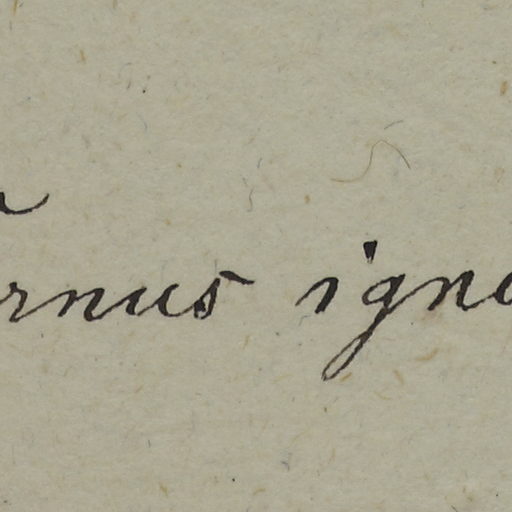 rnus igno